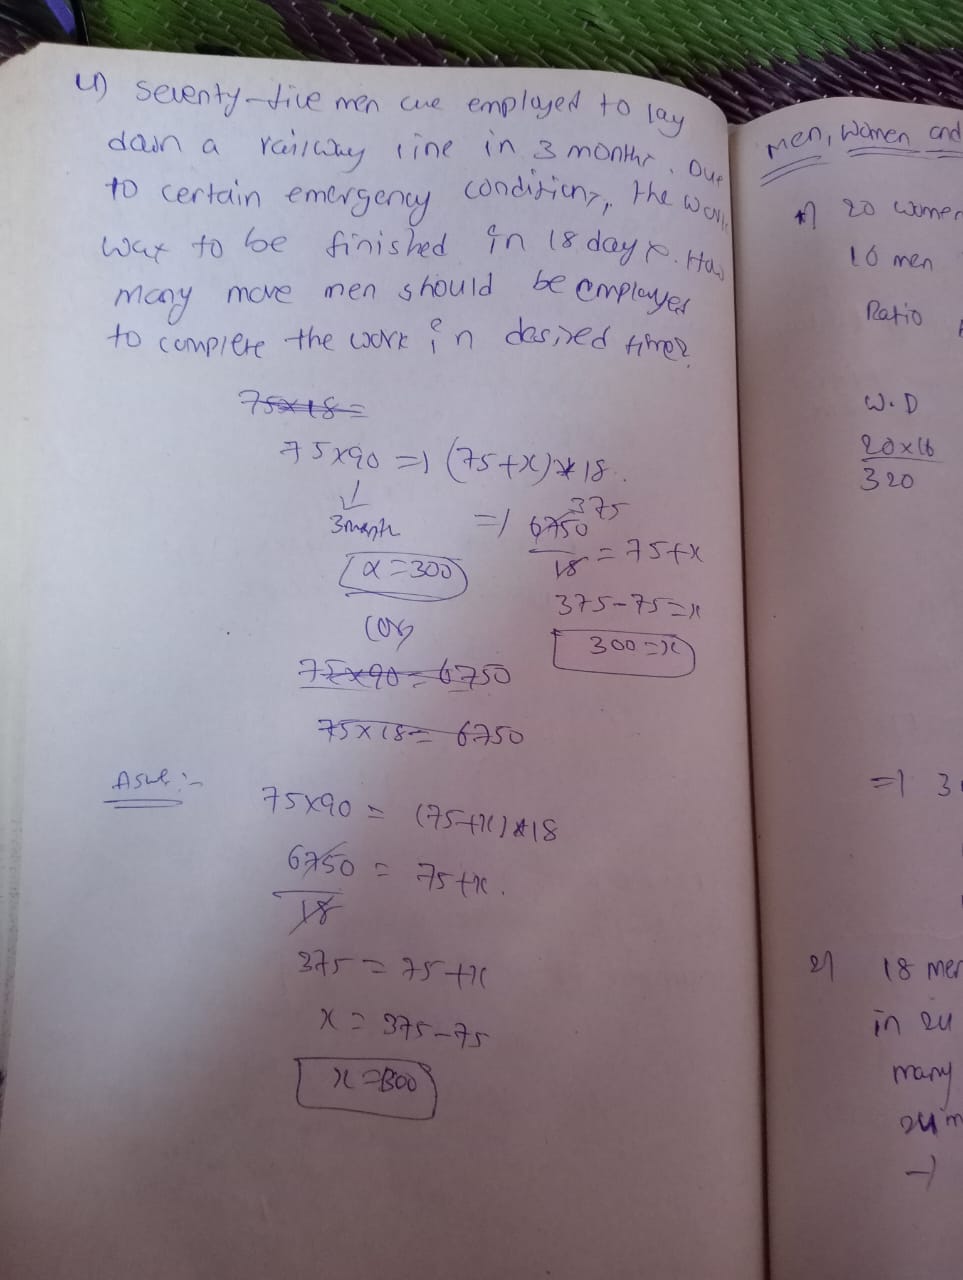 4) Seventy-five men are employed to lay
down a railway line in 3 months. Due
to certain emergency conditions, the work
was to be finished in 18 days. How
many more men should be employed
to complete the work in desired time?
75x18=
75x90 => (75+x)*18.
↓
3month
=> 6750 375
18 = 75+x
x=300
375-75=x
300=x
(or)
75x90=6750
75x18=6750
Aswe:-
75x90 = (75+x)*18
6750 = 75+x.
18
375 = 75+x
x = 375-75
x=300
men, women and
1) 20 women
16 men
Ratio
W.D
20x16
320
=> 3
2) 18 men
in 24
many
24 m
→